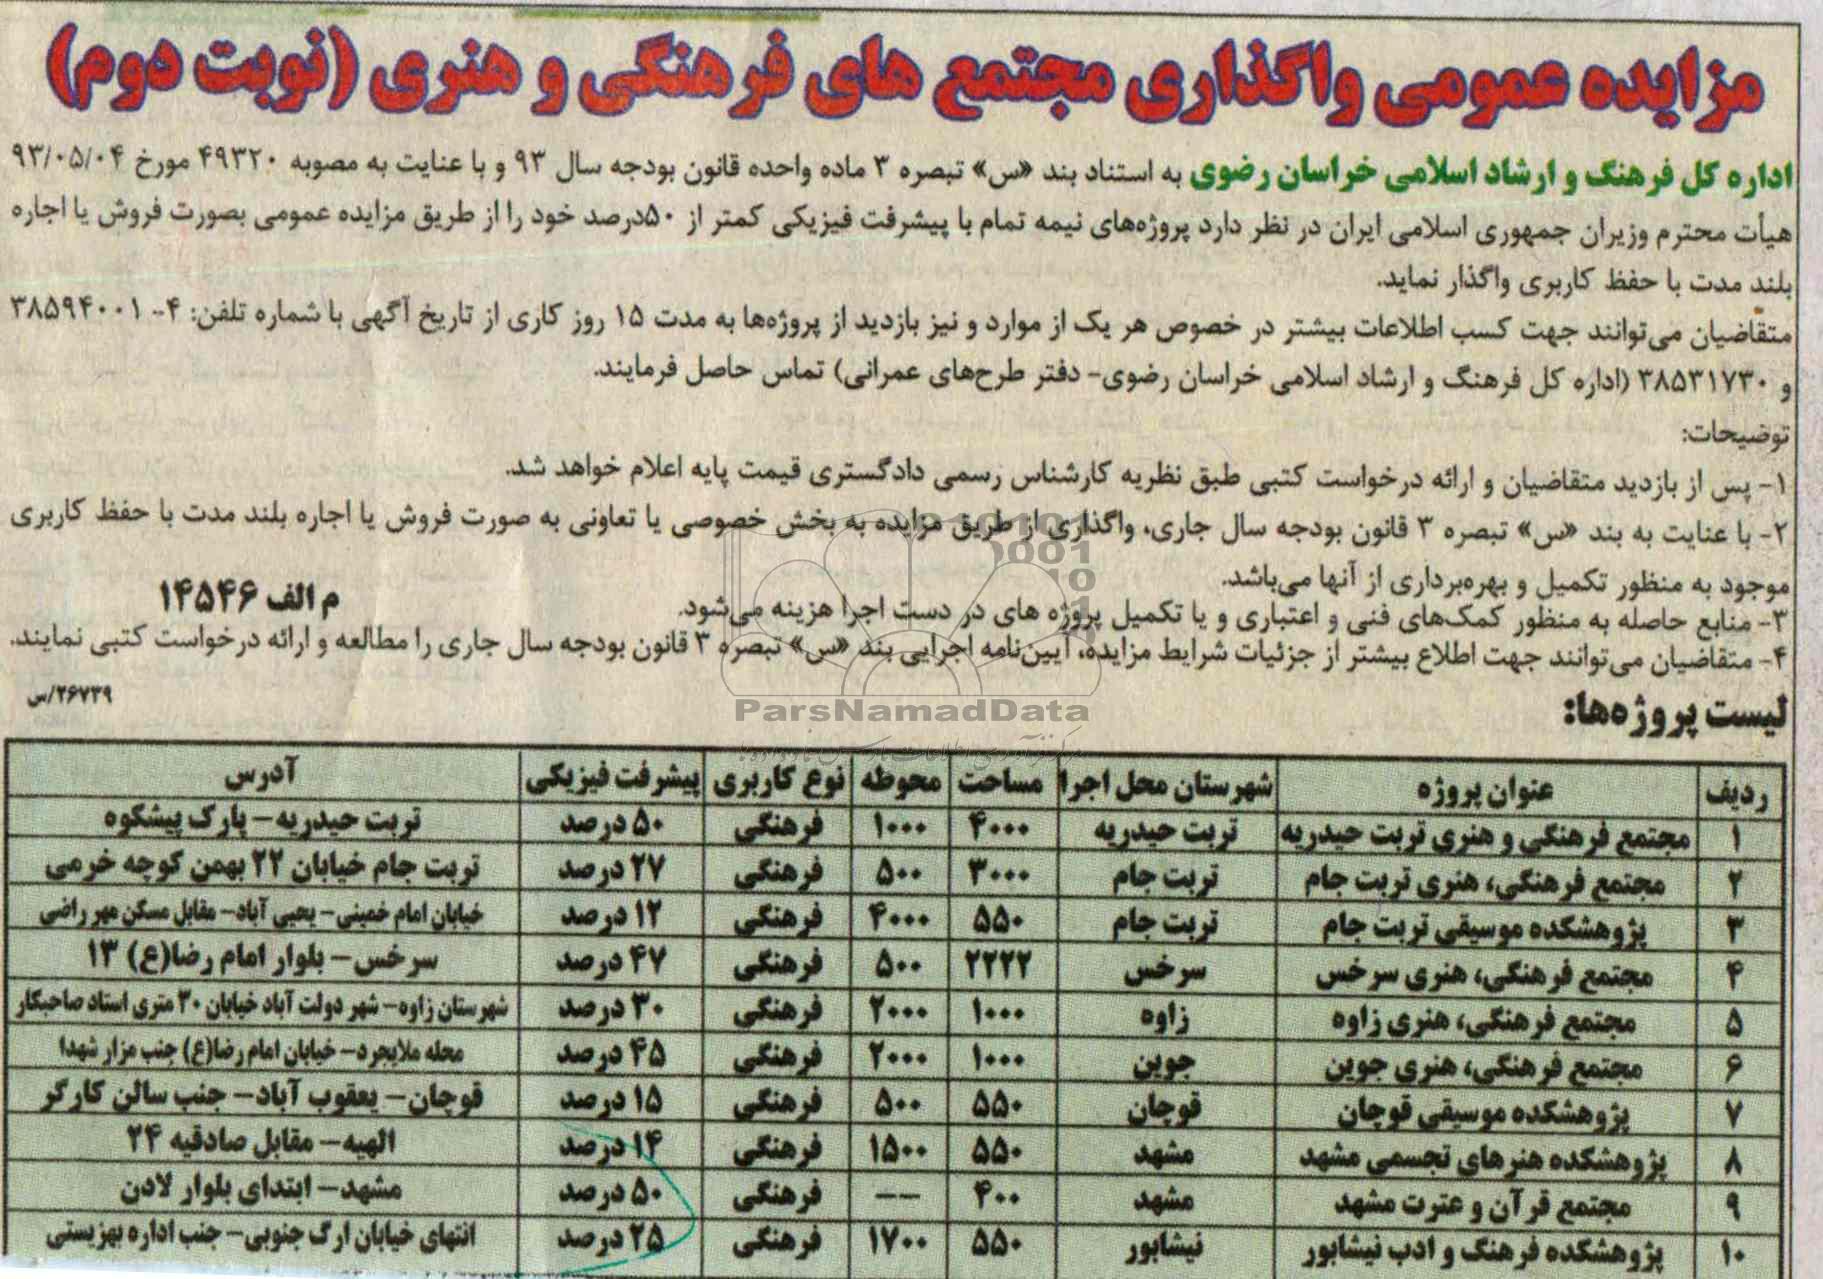 مزایده عمومی واگذاری مجتمع های فرهنگی و هنری (نوبت دوم)
اداره کل فرهنگ و ارشاد اسلامی خراسان رضوی به استناد بند «س» تبصره ۳ ماده واحده قانون بودجه سال ۹۳ و با عنایت به مصوبه ۴۹۳۲۰ مورخ ۹۳/۰۵/۰۴
هیأت محترم وزیران جمهوری اسلامی ایران در نظر دارد پروژه‌های نیمه تمام با پیشرفت فیزیکی کمتر از ۵۰درصد خود را از طریق مزایده عمومی بصورت فروش یا اجاره
بلند مدت با حفظ کاربری واگذار نماید.
متقاضیان می‌توانند جهت کسب اطلاعات بیشتر در خصوص هر یک از موارد و نیز بازدید از پروژه‌ها به مدت ۱۵ روز کاری از تاریخ آگهی با شماره تلفن: ۴- ۳۸۵۹۴۰۰۱
و ۳۸۵۳۱۷۳۰ (اداره کل فرهنگ و ارشاد اسلامی خراسان رضوی- دفتر طرح‌های عمرانی) تماس حاصل فرمایند.
توضیحات:
۱- پس از بازدید متقاضیان و ارائه درخواست کتبی طبق نظریه کارشناس رسمی دادگستری قیمت پایه اعلام خواهد شد.
۲- با عنایت به بند «س» تبصره ۳ قانون بودجه سال جاری، واگذاری از طریق مزایده به بخش خصوصی یا تعاونی به صورت فروش یا اجاره بلند مدت با حفظ کاربری
موجود به منظور تکمیل و بهره‌برداری از آنها می‌باشد.
۳- منابع حاصله به منظور کمک‌های فنی و اعتباری و یا تکمیل پروژه های در دست اجرا هزینه می‌شود.
م الف ۱۴۵۴۶
۴- متقاضیان می‌توانند جهت اطلاع بیشتر از جزئیات شرایط مزایده، آیین‌نامه اجرایی بند «س» تبصره ۳ قانون بودجه سال جاری را مطالعه و ارائه درخواست کتبی نمایند.
۲۶۷۳۹/س
لیست پروژه‌ها:
ParsNamadData
ردیف عنوان پروژه شهرستان محل اجرا مساحت محوطه نوع کاربری پیشرفت فیزیکی آدرس
۱ مجتمع فرهنگی و هنری تربت حیدریه تربت حیدریه ۴۰۰۰ ۱۰۰۰ فرهنگی ۵۰ درصد تربت حیدریه- پارک پیشکوه
۲ مجتمع فرهنگی، هنری تربت جام تربت جام ۳۰۰۰ ۵۰۰ فرهنگی ۲۷ درصد تربت جام خیابان ۲۲ بهمن کوچه خرمی
۳ پژوهشکده موسیقی تربت جام تربت جام ۵۵۰ ۴۰۰۰ فرهنگی ۱۲ درصد خیابان امام خمینی- یحیی آباد- مقابل مسکن مهر راضی
۴ مجتمع فرهنگی، هنری سرخس سرخس ۲۲۲۲ ۵۰۰ فرهنگی ۴۷ درصد سرخس- بلوار امام رضا(ع) ۱۳
۵ مجتمع فرهنگی، هنری زاوه زاوه ۱۰۰۰ ۲۰۰۰ فرهنگی ۳۰ درصد شهرستان زاوه- شهر دولت آباد خیابان ۳۰ متری استاد صاحبکار
۶ مجتمع فرهنگی، هنری جوین جوین ۱۰۰۰ ۲۰۰۰ فرهنگی ۴۵ درصد محله ملایجرد- خیابان امام رضا(ع) جنب مزار شهدا
۷ پژوهشکده موسیقی قوچان قوچان ۵۵۰ ۵۰۰ فرهنگی ۱۵ درصد قوچان- یعقوب آباد- جنب سالن کارگر
۸ پژوهشکده هنرهای تجسمی مشهد مشهد ۵۵۰ ۱۵۰۰ فرهنگی ۱۴ درصد الهیه- مقابل صادقیه ۲۴
۹ مجتمع قرآن و عترت مشهد مشهد ۴۰۰ -- فرهنگی ۵۰ درصد مشهد- ابتدای بلوار لادن
۱۰ پژوهشکده فرهنگ و ادب نیشابور نیشابور ۵۵۰ ۱۷۰۰ فرهنگی ۲۵ درصد انتهای خیابان ارگ جنوبی- جنب اداره بهزیستی